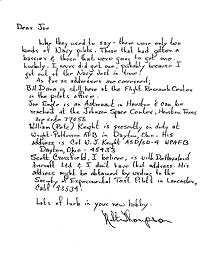 Dear Jim
Why they used to say - there were only two
kinds of Navy pilots. Those that had gotten a
passion & those that were going to get one
luckily. I never did get one, probably because I
got out of the Navy just in time!
As for as addresses are concerned;
Bill Dana is still here at the Flight Research Center
in the pilots office.
Joe Engle is an Astronaut in Houston & can be
reached at the Johnson Space Center, Houston Texas
zip code 77058
William (Pete) Knight is presently on duty at
Wright-Patterson AFB in Dayton, Ohio - His
address is Col W.J. Knight ASD/SD-4 WPAFB
Dayton, Ohio - 45433
Scott Crossfield, I believe, is with
& I don't have that address. His
address might be obtained by writing to the
Society of Experimental Test Pilots in Lancaster,
Calif 93534.
Lots of luck in your new hobby
Thompson